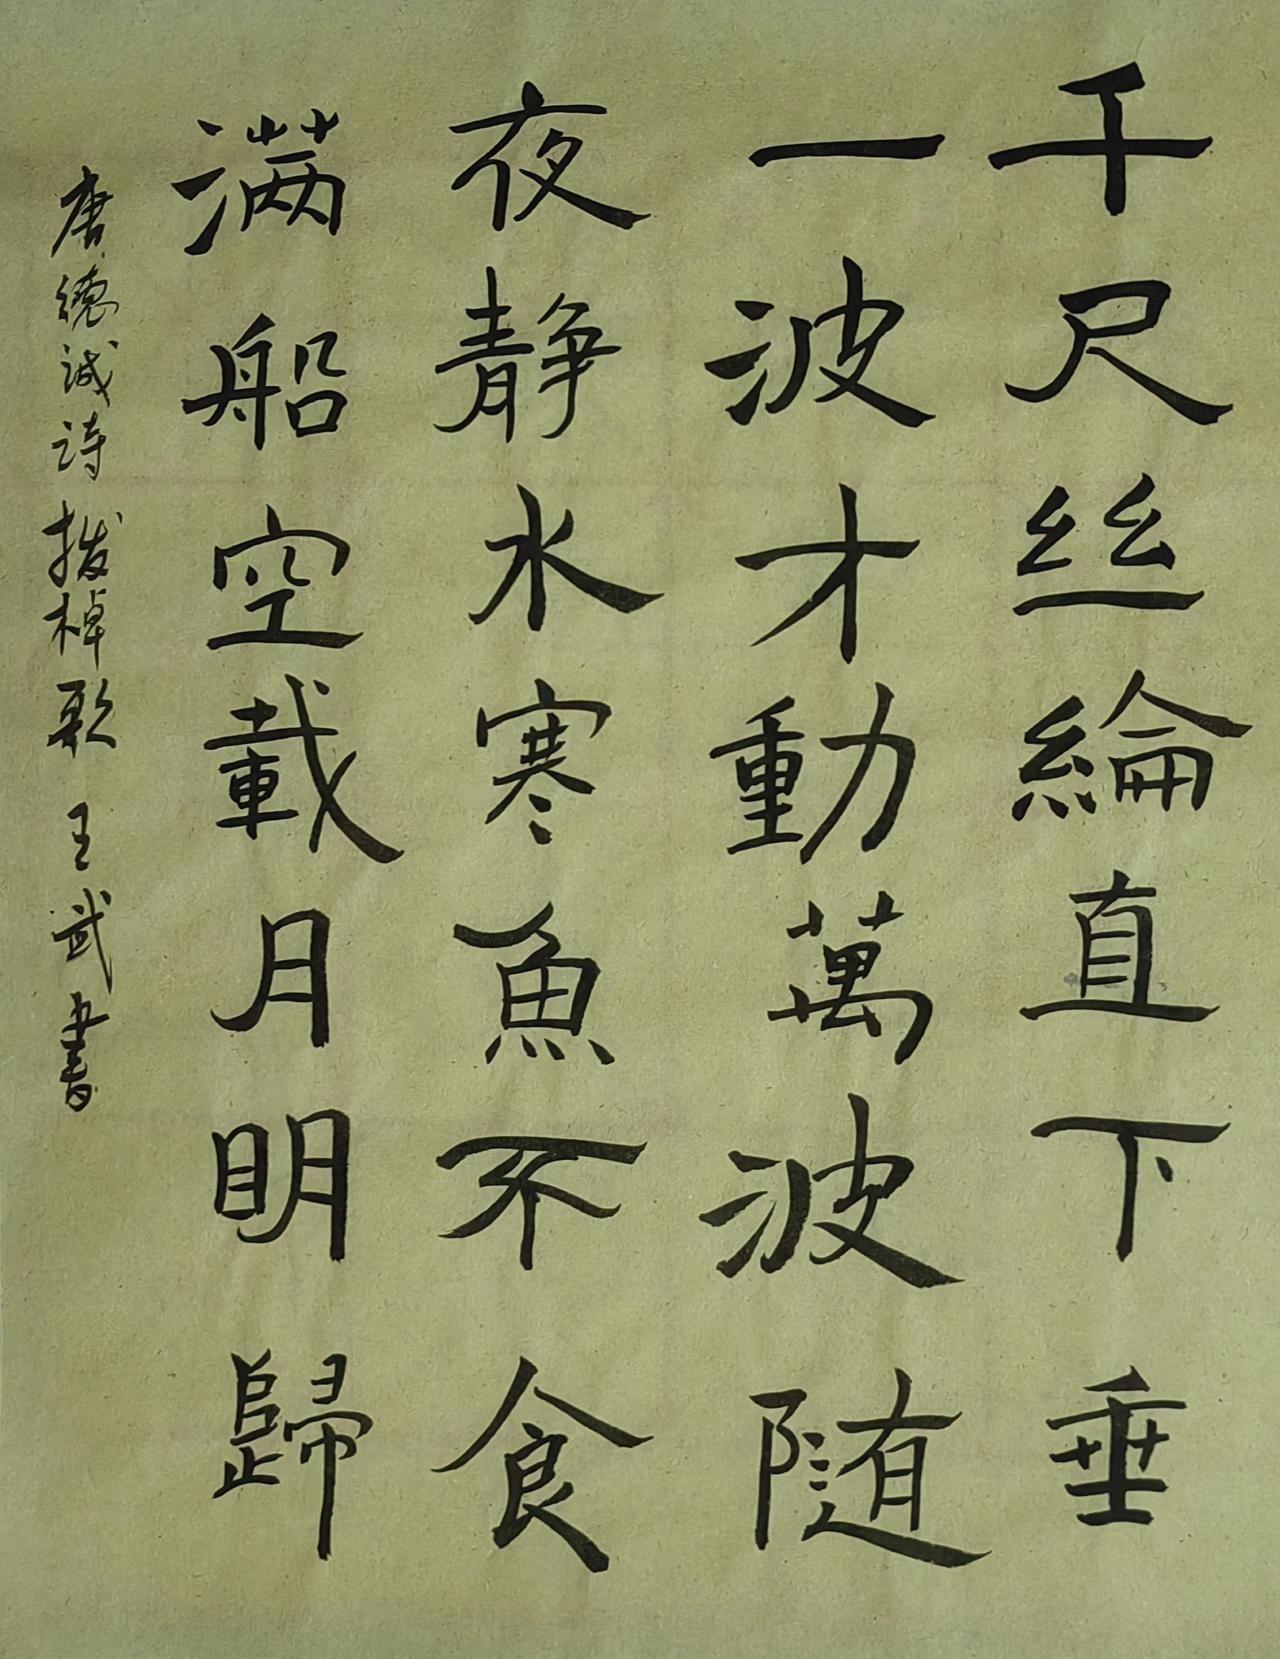 千尺丝綸直下垂
一波才動萬波随
夜静水寒魚不食
满船空載月明歸
唐德诚诗拨棹歌 王武書